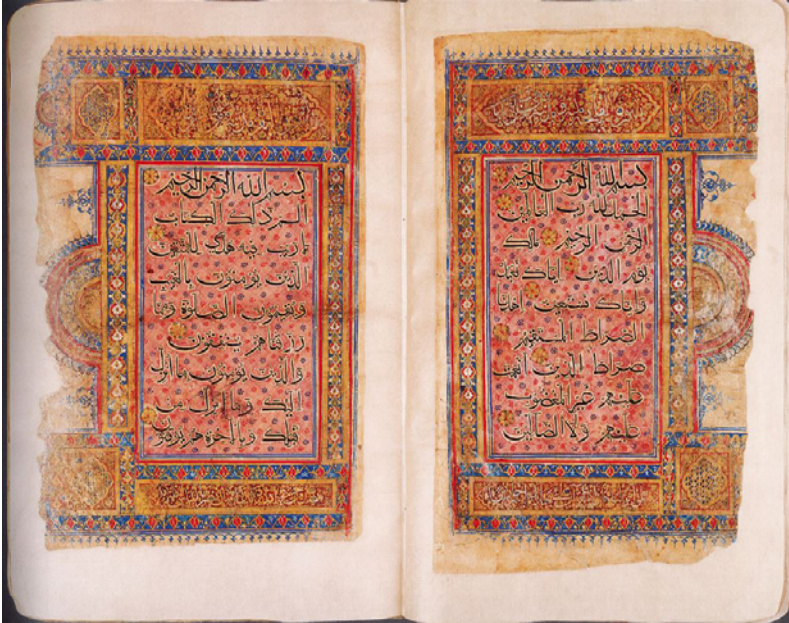 بسم الله الرحمن الرحيم
الحمد لله رب العالمين
الرحمن الرحيم مالك
يوم الدين اياك نعبد
واياك نستعين اهدنا
الصراط المستقيم
صراط الذين انعمت
عليهم غير المغضوب
عليهم ولا الضالين
بسم الله الرحمن الرحيم
الم ذلك الكتاب
لا ريب فيه هدى للمتقين
الذين يومنون بالغيب
ويقيمون الصلوة ومما
رزقناهم ينفقون
والذين يومنون بما انزل
اليك وما انزل من
قبلك وبالاخرة هم يوقنون